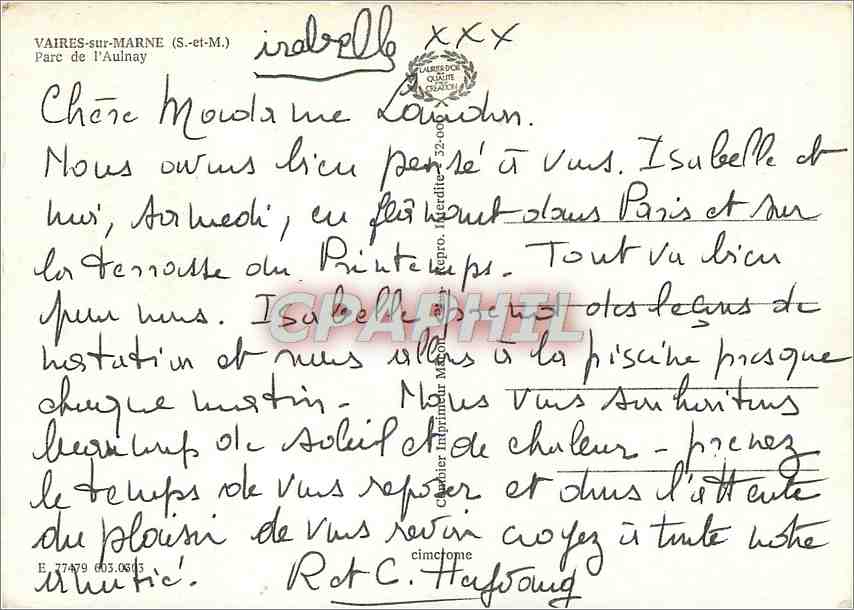 VAIRES-sur-MARNE (S.-et-M.)
Parc de l'Aulnay
isabelle xxx
LAURIER D'OR
DE
QUALITÉ
CRÉATION
Chère Madame
Nous avons bien pensé à vous. Isabelle et
moi, samedi, en flânant dans Paris et sur
la terrasse du Printemps. Tout va bien
pour nous. Isabelle prend des leçons de
natation et nous allons à la piscine presque
chaque matin - Nous vous souhaitons
beaucoup de soleil et de chaleur - prenez
le temps de vous reposer et dans l'attente
du plaisir de vous revoir croyez à toute notre
amitié. R et C.
Combier Imprimeur Macon Repro. Interdite
CPAPHIL
cimcrome
E 77479 603.0303